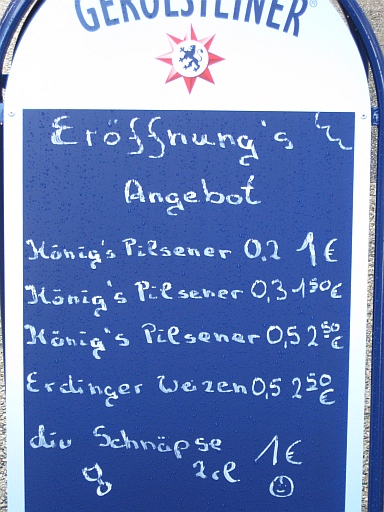 GEROLSTEINER®
Eröffnung's
Angebot
König's Pilsener 0,2 1€
König's Pilsener 0,3 1 50 €
König's Pilsener 0,5 2 50 €
Erdinger Weizen 0,5 2 50 €
div Schnäpse 1€
2cl